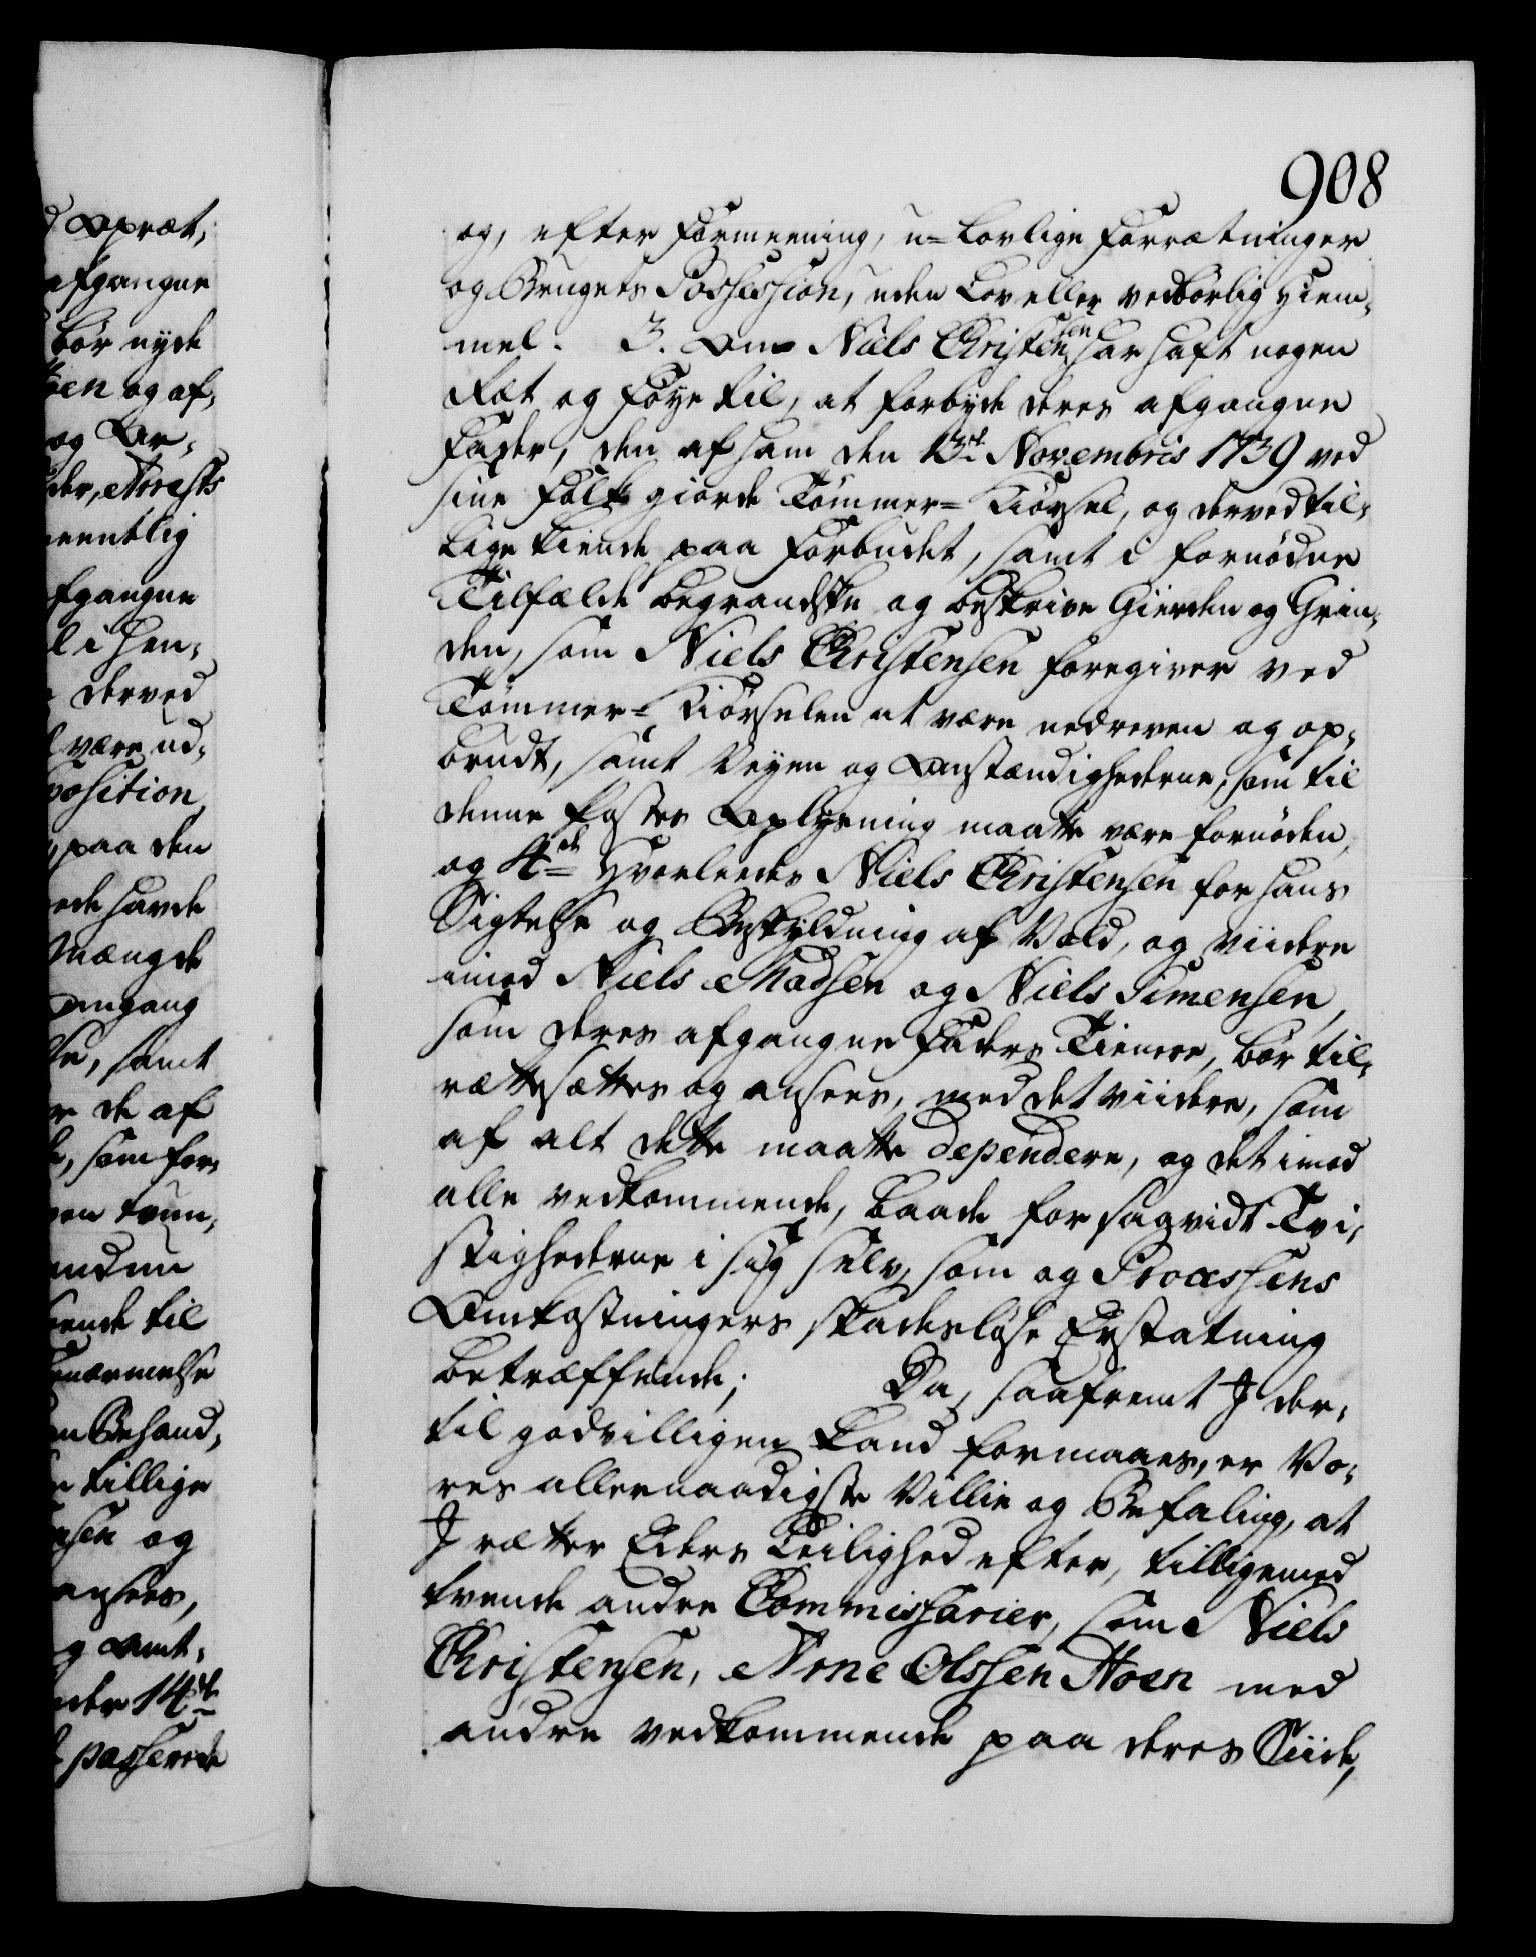 908
og, efter Formeening, u-lovlige Forrætninger
og Brugets Possession, uden Lov eller vedbørlig Hiem,
mel. 3. Om Niels Christensen har haft nogen
Ræt og Føye til, at forbyde deres afgangne
Fader, den af ham den 13de Novembris 1739 ved
sine Folk giorde Tømmer- Kiørsel, og derved til,
lige kiende paa Forbudet, samt i fornødne
Tilfælde begrandske og beskrive Gierden og Grin,
den, som Niels Christensen foregiver ved
Tømmer- Kiørselen at være nedreven og op,
brudt, samt Veyen og Omstændighederne, som til
denne Postes Oplysning maatte være fornøden,
og 4de Hvorleedes Niels Christensen for hans
Sigtelse og Beskyldning af Vold, og viidere
imod Niels Madsen og Niels Simensen,
som deres afgangne Faders Tienere, bør til,
rættesættes og ansees, med det viidere, som
af alt dette maatte dependere, og det imod
alle vedkommende, baade for saavidt Tvi,
stighederne i sig selv, som og Processens
Omkostningers skadesløse Erstatning
betræffende; Da, saafremt I der,
til godvilligen kand formaaes, er Vo,
res allernaadigste Villie og Befaling, at
I rætter Eders Leilighed efter, tilligemed
tvende andre Commissarier, som Niels
Christensen, Arne Olssen Moen med
andre vedkommende paa deres Siide,
d Opræt,
afgangne
bør nyde
oen og af,
og Ar,
der, Arrests
neentlig
afgangne
l i Hen,
derved
være ud,
position,
paa den
ode havde
Mængde
omgang
se, samt
r de af
e, som for,
gen tvun,
ende til
nærmelse
en Behand,
e tillige
nsen og
ansees,
g Omt,
nder 14de
passerede